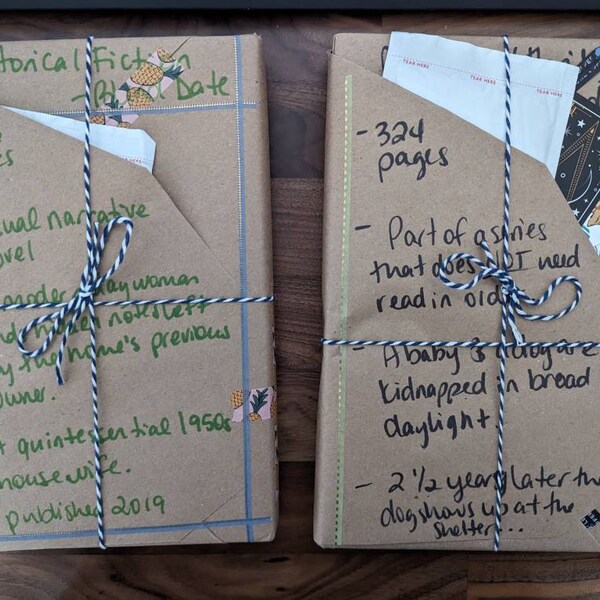 torical Fiction
Date
ual narrative
ovel
modern day woman
hidden notes left
by the home's previous
owner.
quintessential 1950s
housewife.
published 2019
TEAR HERE
TEAR HERE
TEAR HERE
- 324
pages
- Part of a series
that does NOT need
read in order
- A baby & a dog are
kidnapped in broad
daylight
- 2 1/2 years later the
dog shows up at the
shelter...